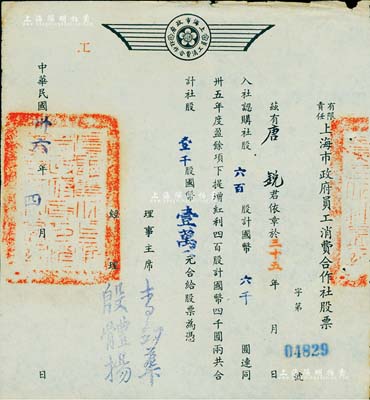 上海市政府
員工消費合作社
有限
責任
上海市政府員工消費合作社股票
字第
04829
號
茲有唐銳君依章於三十五年 月 日
入社認購社股六百股計國幣六千圓連同
卅五年度盈餘項下提增紅利四百股計國幣四千圓兩共合
計社股壹千股國幣壹萬元合給股票為憑
理事主席
經理
殷體揚
中華民國卅六年四月 日
工